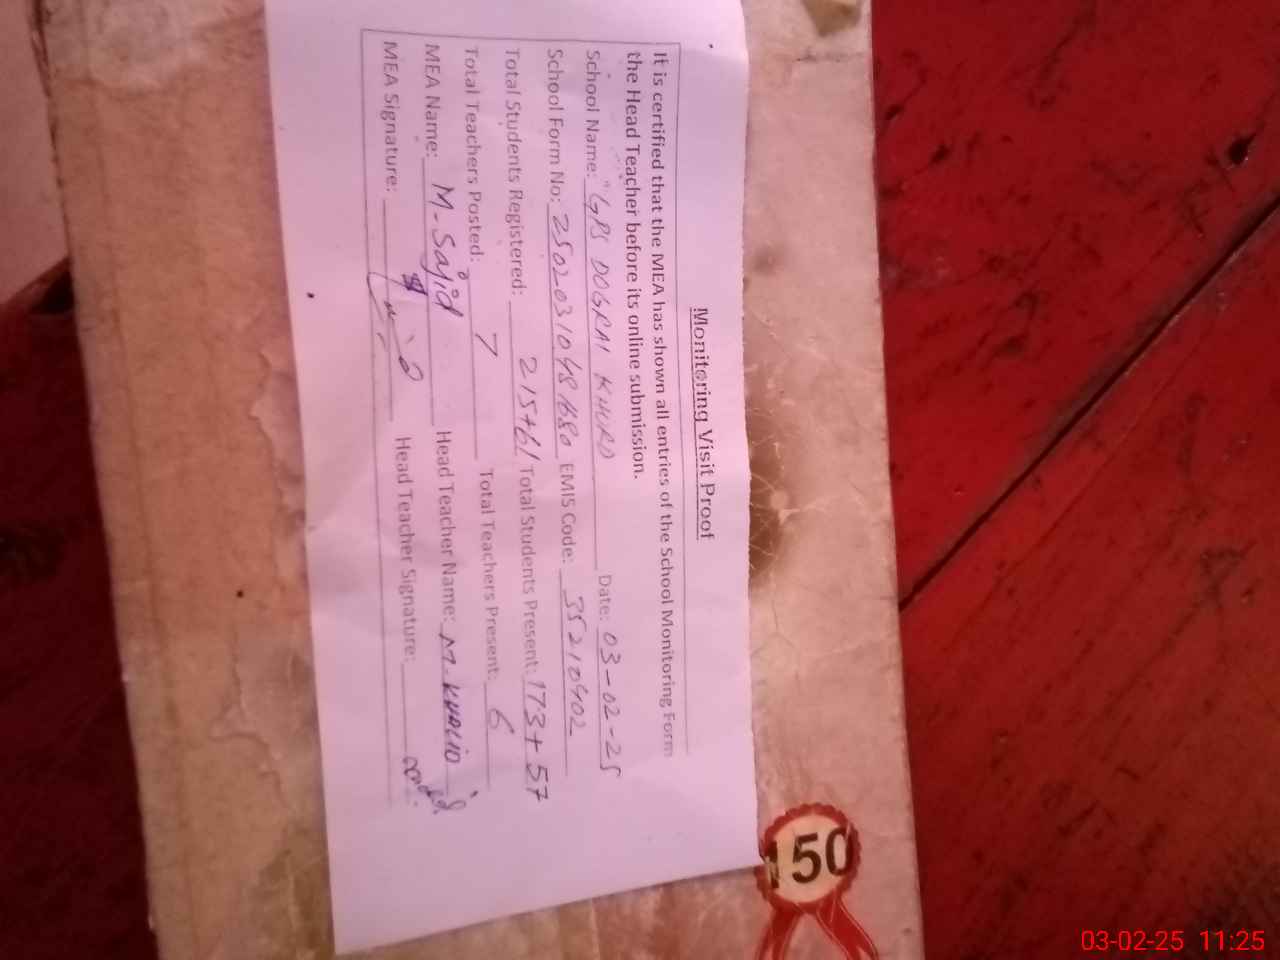 Monitoring Visit Proof
It is certified that the MEA has shown all entries of the School Monitoring Form
the Head Teacher before its online submission.
School Name: "GPS DOGRAI KHURD Date: 03-02-25
School Form No: 25020310481680 EMIS Code: 35210402
Total Students Registered: 215+61 Total Students Present: 173+57
Total Teachers Posted: 7 Total Teachers Present: 6
MEA Name: M-Sajid Head Teacher Name: M. KHALID
MEA Signature: Head Teacher Signature:
150
03-02-25 11:25